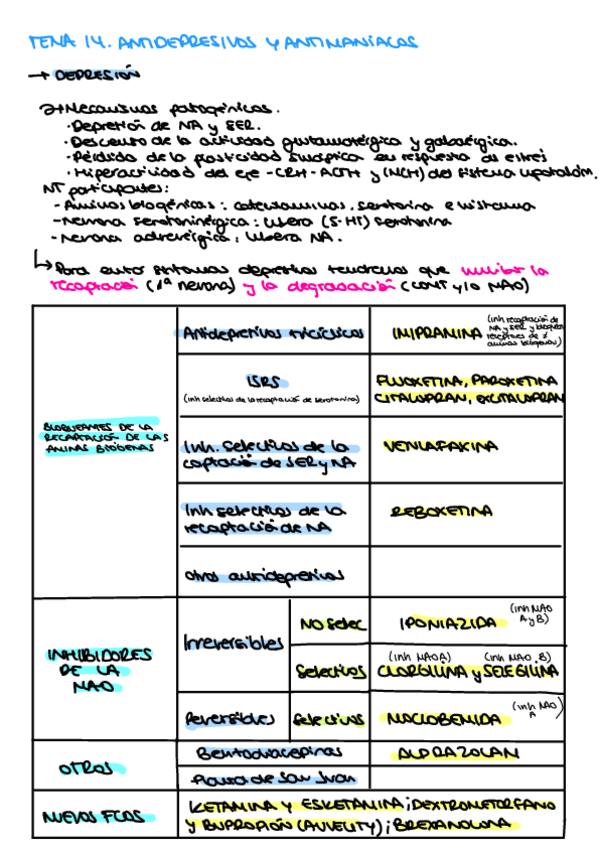 TEMA 14. ANTIDEPRESIVOS Y ANTIMANÍACOS
→ DEPRESIÓN
Mecanismos patogénicos.
· Depreción de NA y SER.
· Descenso de la actividad glutamatérgica y gabaérgica.
· Pérdida de la plasticidad sináptica en respuesta al estrés
· Hiperactividad del eje - CRH - ACTH y (NCH) del sistema hipotalám.
NT participantes:
- Aminas biogénicas: catecolaminas, serotonina e histamina
- Neurona serotoninérgica: libera (5-HT) serotonina
- Neurona adrenérgica: libera NA.
↳ Para evitar síntomas depresivos tendremos que inhibir la
recaptación (1ª neurona) y la degradación (COMT y/o MAO)
BLOQUEANTES DE LA
RECAPTACIÓN DE LAS
AMINAS BIÓGENAS
Antidepresivos tricíclicos
IMIPRAMINA
(inh recaptación de
NA y SER y bloquean
receptores de
aminas biógenas)
ISRS
(inh selectivos de la recaptación de serotonina)
FLUOXETINA, PAROXETINA
CITALOPRAN, EXCITALOPRAN
Inh. selectivos de la
captación de SER y NA
VENLAFAXINA
Inh selectivos de la
recaptación de NA
REBOXETINA
otros antidepresivos
INHIBIDORES
DE LA
MAO
Irreversibles
NO Selec
IPONIAZIDA
(inh MAO
A y B)
Selectivos
(inh MAO A)
(inh MAO B)
CLORGILINA y SELEGILINA
Reversibles
Selectivos
MOCLOBEMIDA
(inh MAO
A)
OTROS
Bentodiacepinas
ALPRAZOLAN
Planta de San Juan
NUEVOS FCOS
KETAMINA Y ESKETAMINA; DEXTROMETORFANO
Y BUPROPIÓN (AUVELITY); BREXANOLONA